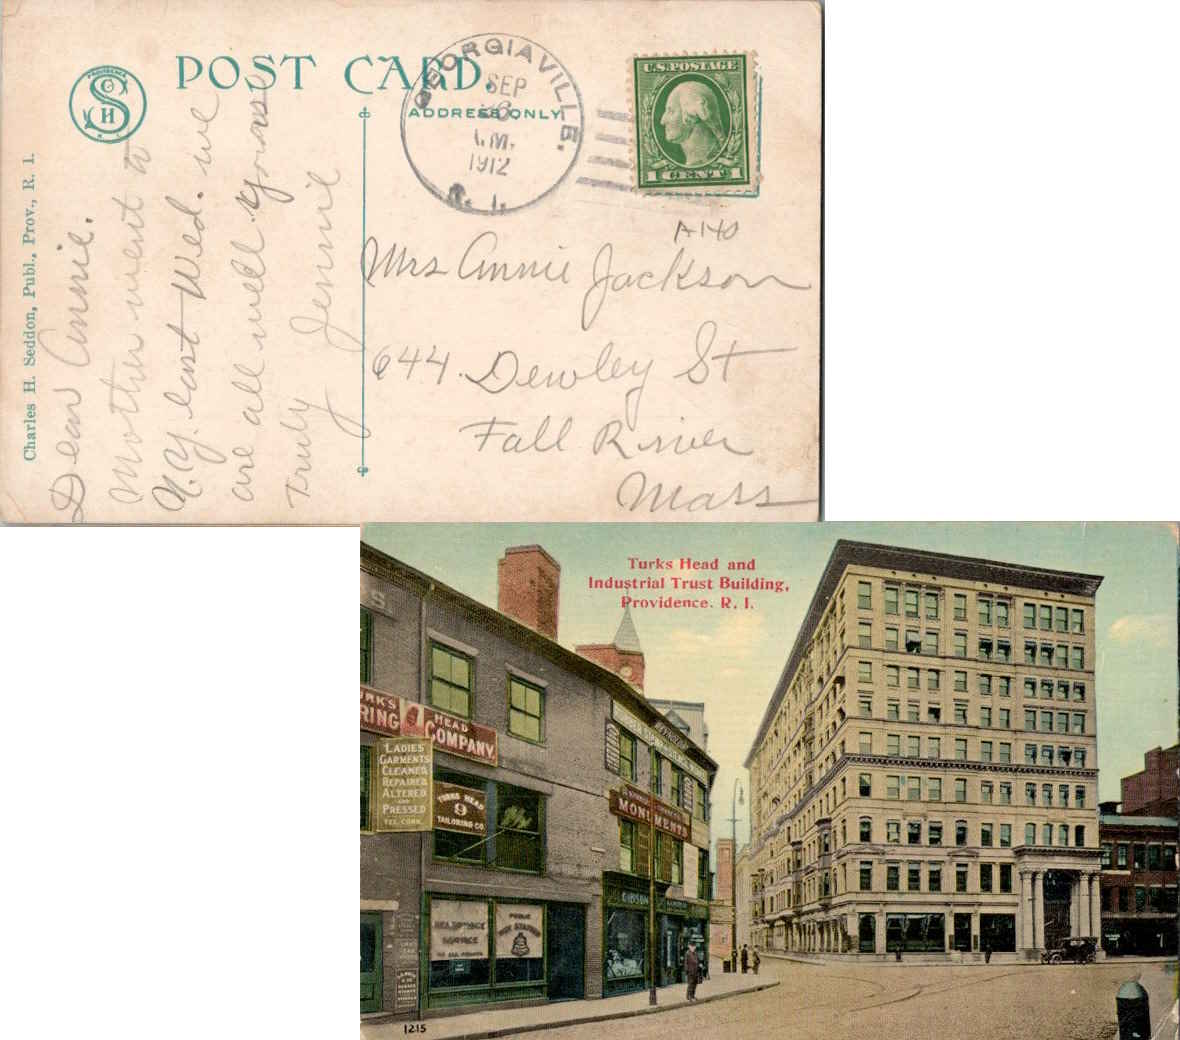 POST CARD.
ADDRESS ONLY.
PROVIDENCE
S
H
R. I.
Charles H. Seddon, Publ., Prov., R. I.
GEORGIAVILLE.
SEP
1912
R. I.
U.S. POSTAGE
1 CENT 1
A140
Dear Annie.
Mother went to
N.Y. last Wed. we
are all well yours
Truly Jennie
Mrs Annie Jackson
644. Dewley St
Fall River
Mass
Turks Head and
Industrial Trust Building,
Providence. R. I.
S
URK'S HEAD
RING COMPANY.
LADIES
GARMENTS
CLEANED
REPAIRED
ALTERED
AND
PRESSED
TURKS HEAD
9
TAILORING CO.
MONUMENTS
GIBSON
PUBLIC
PAY STATION
SERVICE
1215